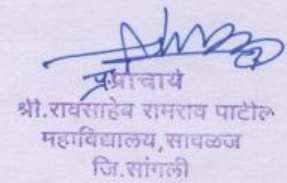 प्र.प्राचार्य
श्री.रावसाहेब रामराव पाटील
महाविद्यालय,सावळज
जि.सांगली